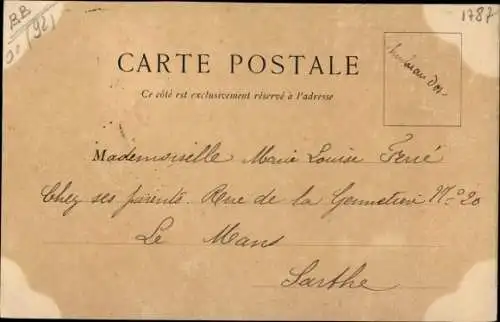 BB
1921
1787
CARTE POSTALE
Ce côté est exclusivement réservé à l'adresse
Mademoiselle Marie Louise Ferré
Chez ses parents. Rue de la N° 20
Le Mans
Sarthe